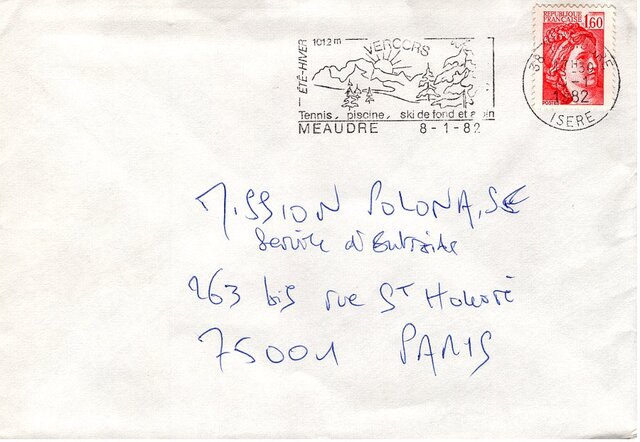 ÉTÉ-HIVER
1012 m
VERCORS
Tennis, piscine, ski de fond et alpin
MEAUDRE 8-1-82
REPUBLIQUE
FRANÇAISE
1,60
POSTES
38
1982
ISERE
MISSION POLONAISE
Service d'Entraide
263 bis rue St Honoré
75001 PARIS